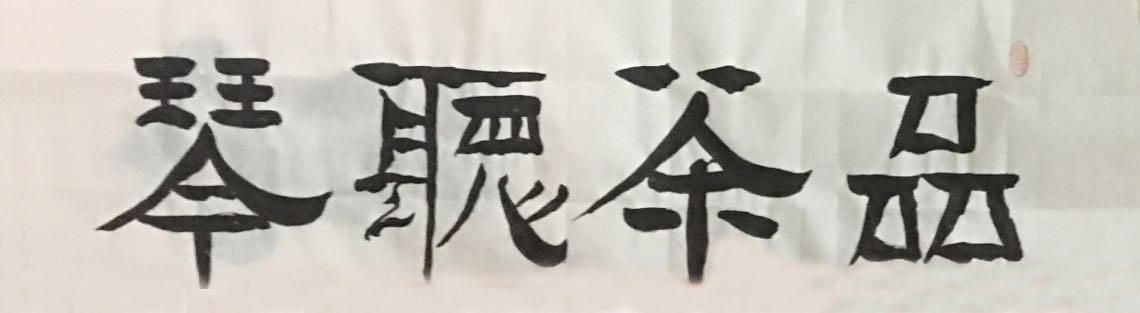 品茶聽琴